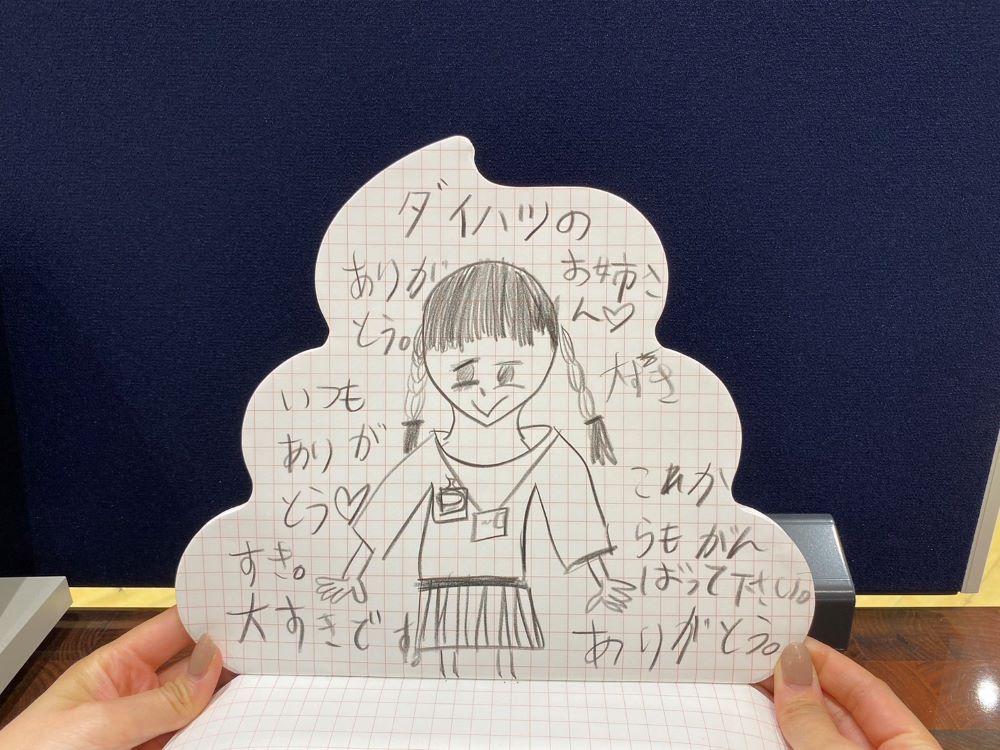 ダイハツの
お姉さ
ん♡
大ずき
ありが
とう。
いつも
ありが
とう♡
すき。
大すきです。
これか
らもがん
ばって下さい。
ありがとう。